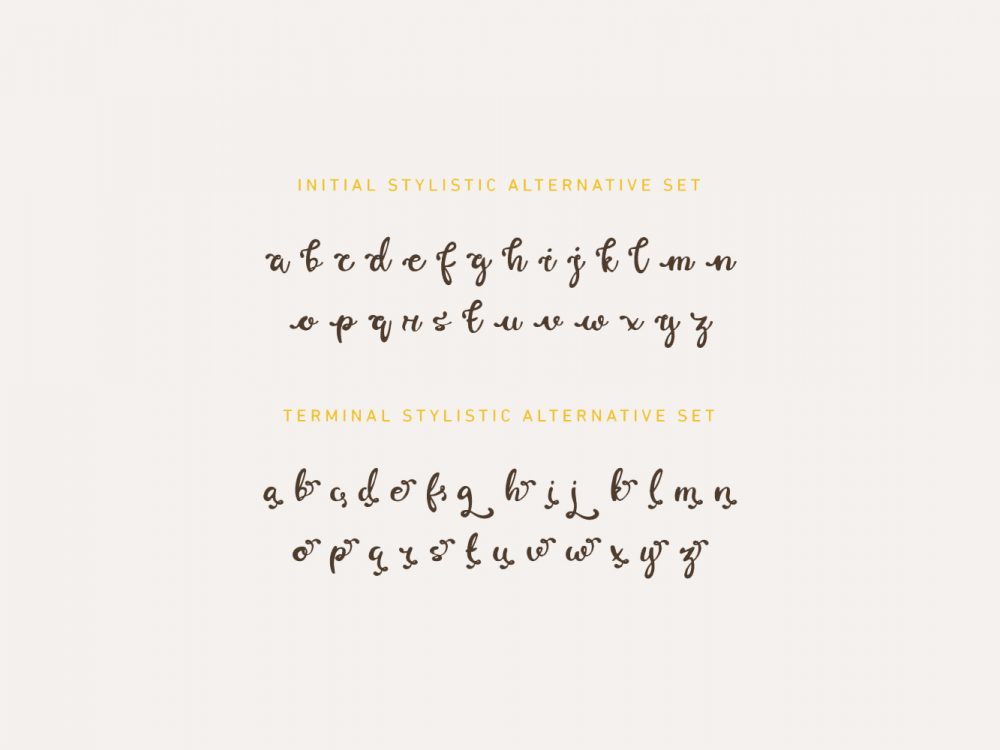 INITIAL STYLISTIC ALTERNATIVE SET
a b c d e f g h i j k l m n
o p q r s t u v w x y z
TERMINAL STYLISTIC ALTERNATIVE SET
a b c d e f g h i j k l m n
o p q r s t u v w x y z